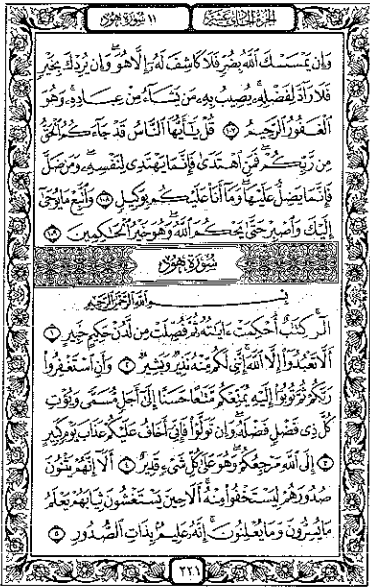 الجزء الحادي عشر
١١ سورة هود
وَإِن يَمْسَسْكَ ٱللَّهُ بِضُرٍّ فَلَا كَاشِفَ لَهُۥٓ إِلَّا هُوَ ۖ وَإِن يُرِدْكَ بِخَيْرٍ
فَلَا رَآدَّ لِفَضْلِهِۦ ۚ يُصِيبُ بِهِۦ مَن يَشَآءُ مِنْ عِبَادِهِۦ ۚ وَهُوَ
ٱلْغَفُورُ ٱلرَّحِيمُ ١٠٧ قُلْ يَٰٓأَيُّهَا ٱلنَّاسُ قَدْ جَآءَكُمُ ٱلْحَقُّ
مِن رَّبِّكُمْ ۖ فَمَنِ ٱهْتَدَىٰ فَإِنَّمَا يَهْتَدِى لِنَفْسِهِۦ ۖ وَمَن ضَلَّ
فَإِنَّمَا يَضِلُّ عَلَيْهَا ۖ وَمَآ أَنَا۠ عَلَيْكُم بِوَكِيلٍ ١٠٨ وَٱتَّبِعْ مَا يُوحَىٰٓ
إِلَيْكَ وَٱصْبِرْ حَتَّىٰ يَحْكُمَ ٱللَّهُ ۚ وَهُوَ خَيْرُ ٱلْحَٰكِمِينَ ١٠٩
سورة هود
بِسْمِ ٱللَّهِ ٱلرَّحْمَٰنِ ٱلرَّحِيمِ
الٓر ۚ كِتَٰبٌ أُحْكِمَتْ ءَايَٰتُهُۥ ثُمَّ فُصِّلَتْ مِن لَّدُنْ حَكِيمٍ خَبِيرٍ ١
أَلَّا تَعْبُدُوٓا۟ إِلَّا ٱللَّهَ ۚ إِنَّنِى لَكُم مِّنْهُ نَذِيرٌ وَبَشِيرٌ ٢ وَأَنِ ٱسْتَغْفِرُوا۟
رَبَّكُمْ ثُمَّ تُوبُوٓا۟ إِلَيْهِ يُمَتِّعْكُم مَّتَٰعًا حَسَنًا إِلَىٰٓ أَجَلٍ مُّسَمًّى وَيُؤْتِ
كُلَّ ذِى فَضْلٍ فَضْلَهُۥ ۖ وَإِن تَوَلَّوْا۟ فَإِنِّىٓ أَخَافُ عَلَيْكُمْ عَذَابَ يَوْمٍ كَبِيرٍ
٣ إِلَى ٱللَّهِ مَرْجِعُكُمْ ۖ وَهُوَ عَلَىٰ كُلِّ شَىْءٍ قَدِيرٌ ٤ أَلَآ إِنَّهُمْ يَثْنُونَ
صُدُورَهُمْ لِيَسْتَخْفُوا۟ مِنْهُ ۚ أَلَا حِينَ يَسْتَغْشُونَ ثِيَابَهُمْ يَعْلَمُ
مَا يُسِرُّونَ وَمَا يُعْلِنُونَ ۚ إِنَّهُۥ عَلِيمٌۢ بِذَاتِ ٱلصُّدُورِ ٥
٢٢١